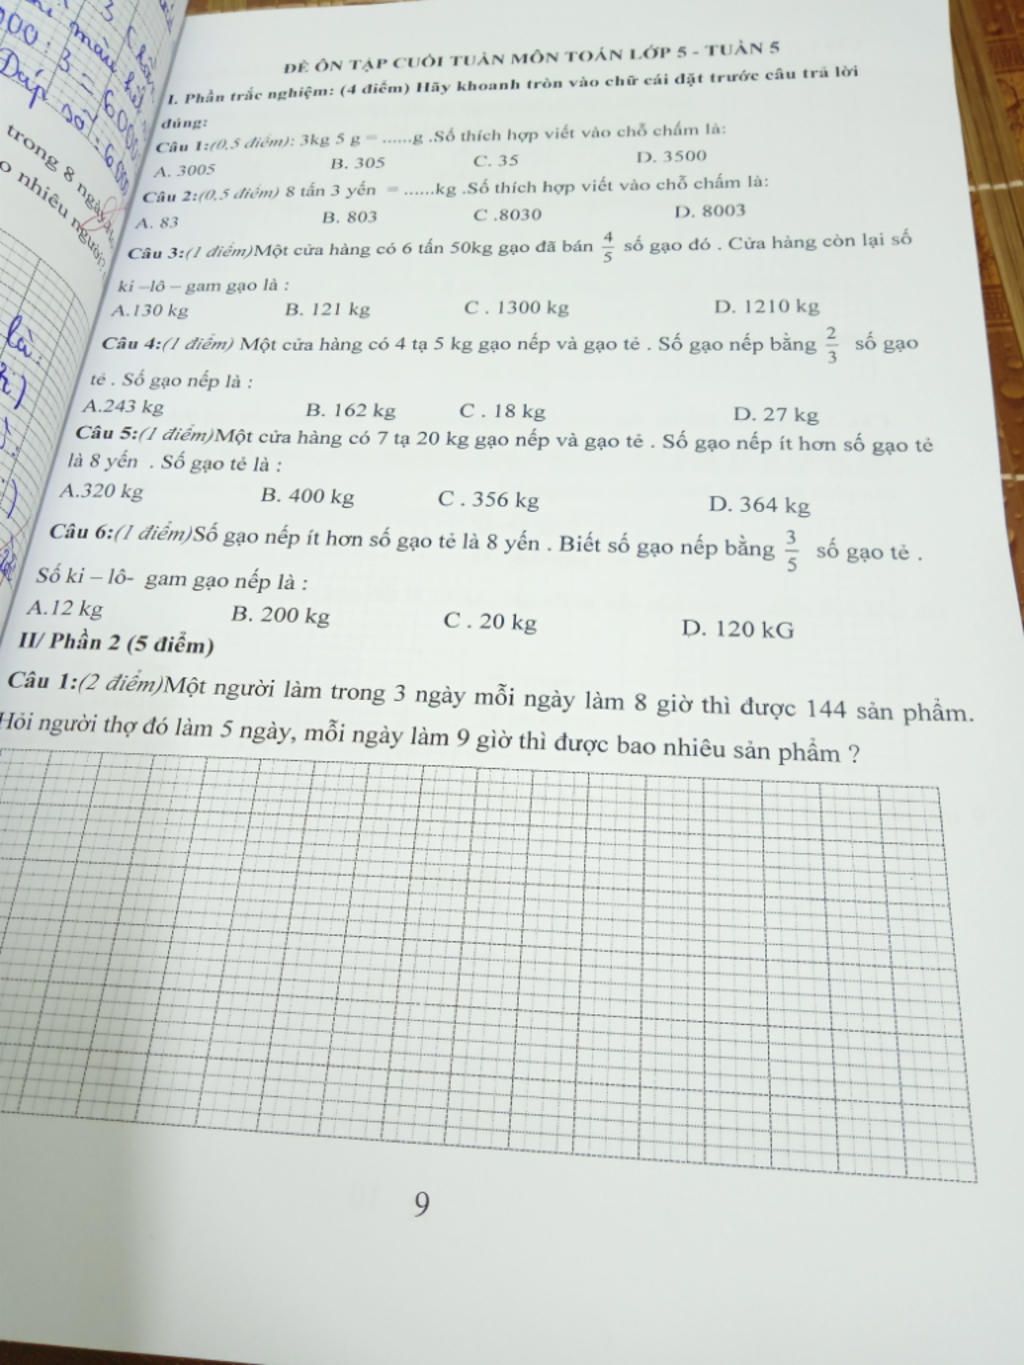 ĐỀ ÔN TẬP CUỐI TUẦN MÔN TOÁN LỚP 5 - TUẦN 5
I. Phần trắc nghiệm: (4 điểm) Hãy khoanh tròn vào chữ cái đặt trước câu trả lời
đúng:
Câu 1:(0,5 điểm): 3kg 5 g = ......g .Số thích hợp viết vào chỗ chấm là:
A. 3005 B. 305 C. 35 D. 3500
Câu 2:(0,5 điểm) 8 tấn 3 yến = ......kg .Số thích hợp viết vào chỗ chấm là:
A. 83 B. 803 C .8030 D. 8003
Câu 3:(1 điểm)Một cửa hàng có 6 tấn 50kg gạo đã bán 4/5 số gạo đó . Cửa hàng còn lại số
ki –lô – gam gạo là :
A.130 kg B. 121 kg C . 1300 kg D. 1210 kg
Câu 4:(1 điểm) Một cửa hàng có 4 tạ 5 kg gạo nếp và gạo tẻ . Số gạo nếp bằng 2/3 số gạo
tẻ . Số gạo nếp là :
A.243 kg B. 162 kg C . 18 kg D. 27 kg
Câu 5:(1 điểm)Một cửa hàng có 7 tạ 20 kg gạo nếp và gạo tẻ . Số gạo nếp ít hơn số gạo tẻ
là 8 yến . Số gạo tẻ là :
A.320 kg B. 400 kg C . 356 kg D. 364 kg
Câu 6:(1 điểm)Số gạo nếp ít hơn số gạo tẻ là 8 yến . Biết số gạo nếp bằng 3/5 số gạo tẻ .
Số ki – lô- gam gạo nếp là :
A.12 kg B. 200 kg C . 20 kg D. 120 kG
II/ Phần 2 (5 điểm)
Câu 1:(2 điểm)Một người làm trong 3 ngày mỗi ngày làm 8 giờ thì được 144 sản phẩm.
Hỏi người thợ đó làm 5 ngày, mỗi ngày làm 9 giờ thì được bao nhiêu sản phẩm ?
9
trong 8 ngày
o nhiêu người
Đáp số : 6000
là: